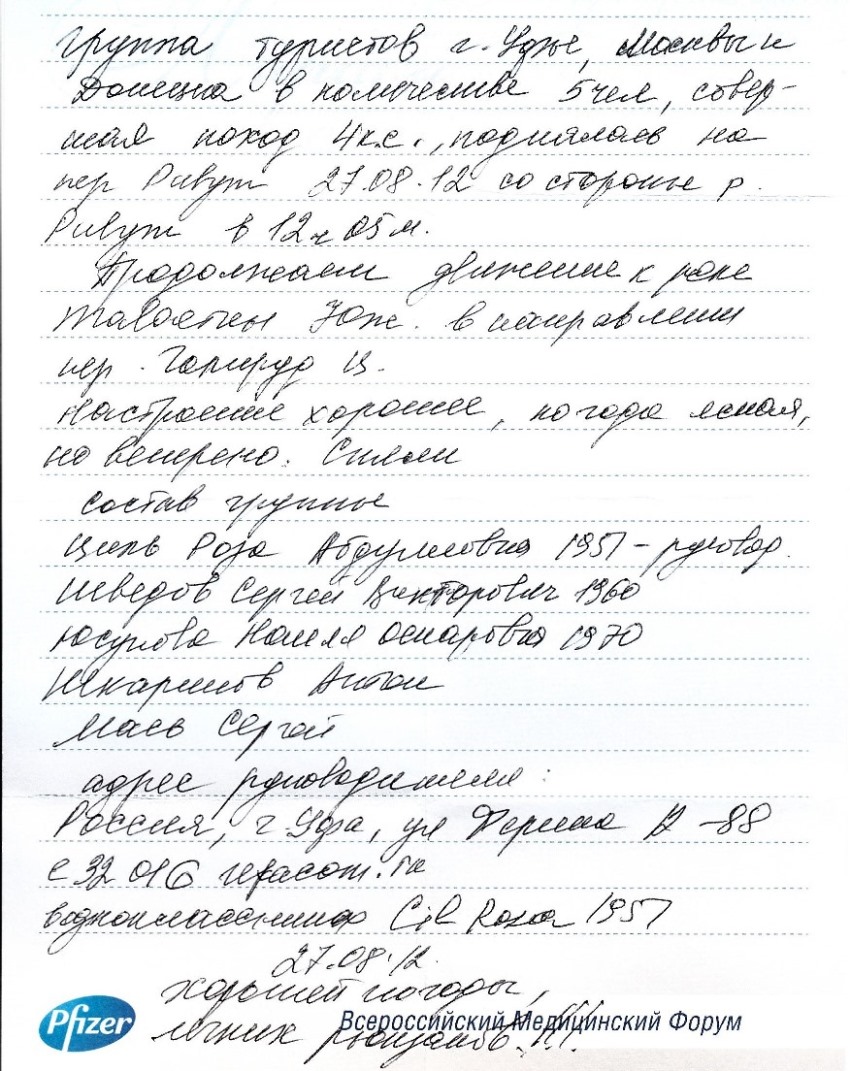 Группа туристов г. Уфы, Москвы и
Донецка в количестве 5 чел, совер-
шая поход 4 к.с., поднялась на
пер Ривут 27.08.12 со стороны р.
Ривут в 12 ч 05 м.
Продолжаем движение к реке
Юж. в направлении
пер. Ц.
Настроение хорошее, погода ясная,
но ветрено.
состав группы
Циль Роза 1951 – руковод.
Шведов Сергей Викторович 1960
Юсупова Наиля Оскаровна 1970
Антон
Мась Сергей
адрес руководителя:
Россия, г. Уфа, ул Ферина Д -88
в одноклассниках Cil Roza 1951
27.08.12.
хорошей погоды,
легких рюкзаков !!!
Pfizer
Всероссийский Медицинский Форум